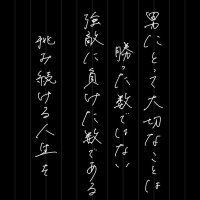 男にとって大切なことは
勝った数ではない
強敵に負けた数である
挑み続ける人生を